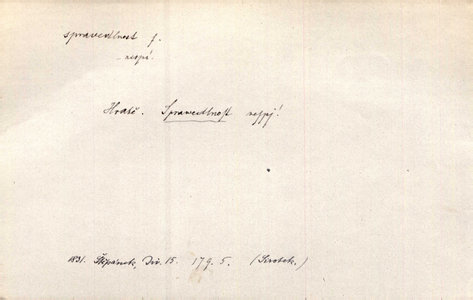 spravedlnost f.
nespí.
Hrabě. Sprawedlnost nespj!
1831. Štěpánek, Div. 15. 179. 5. (Sirotek.)